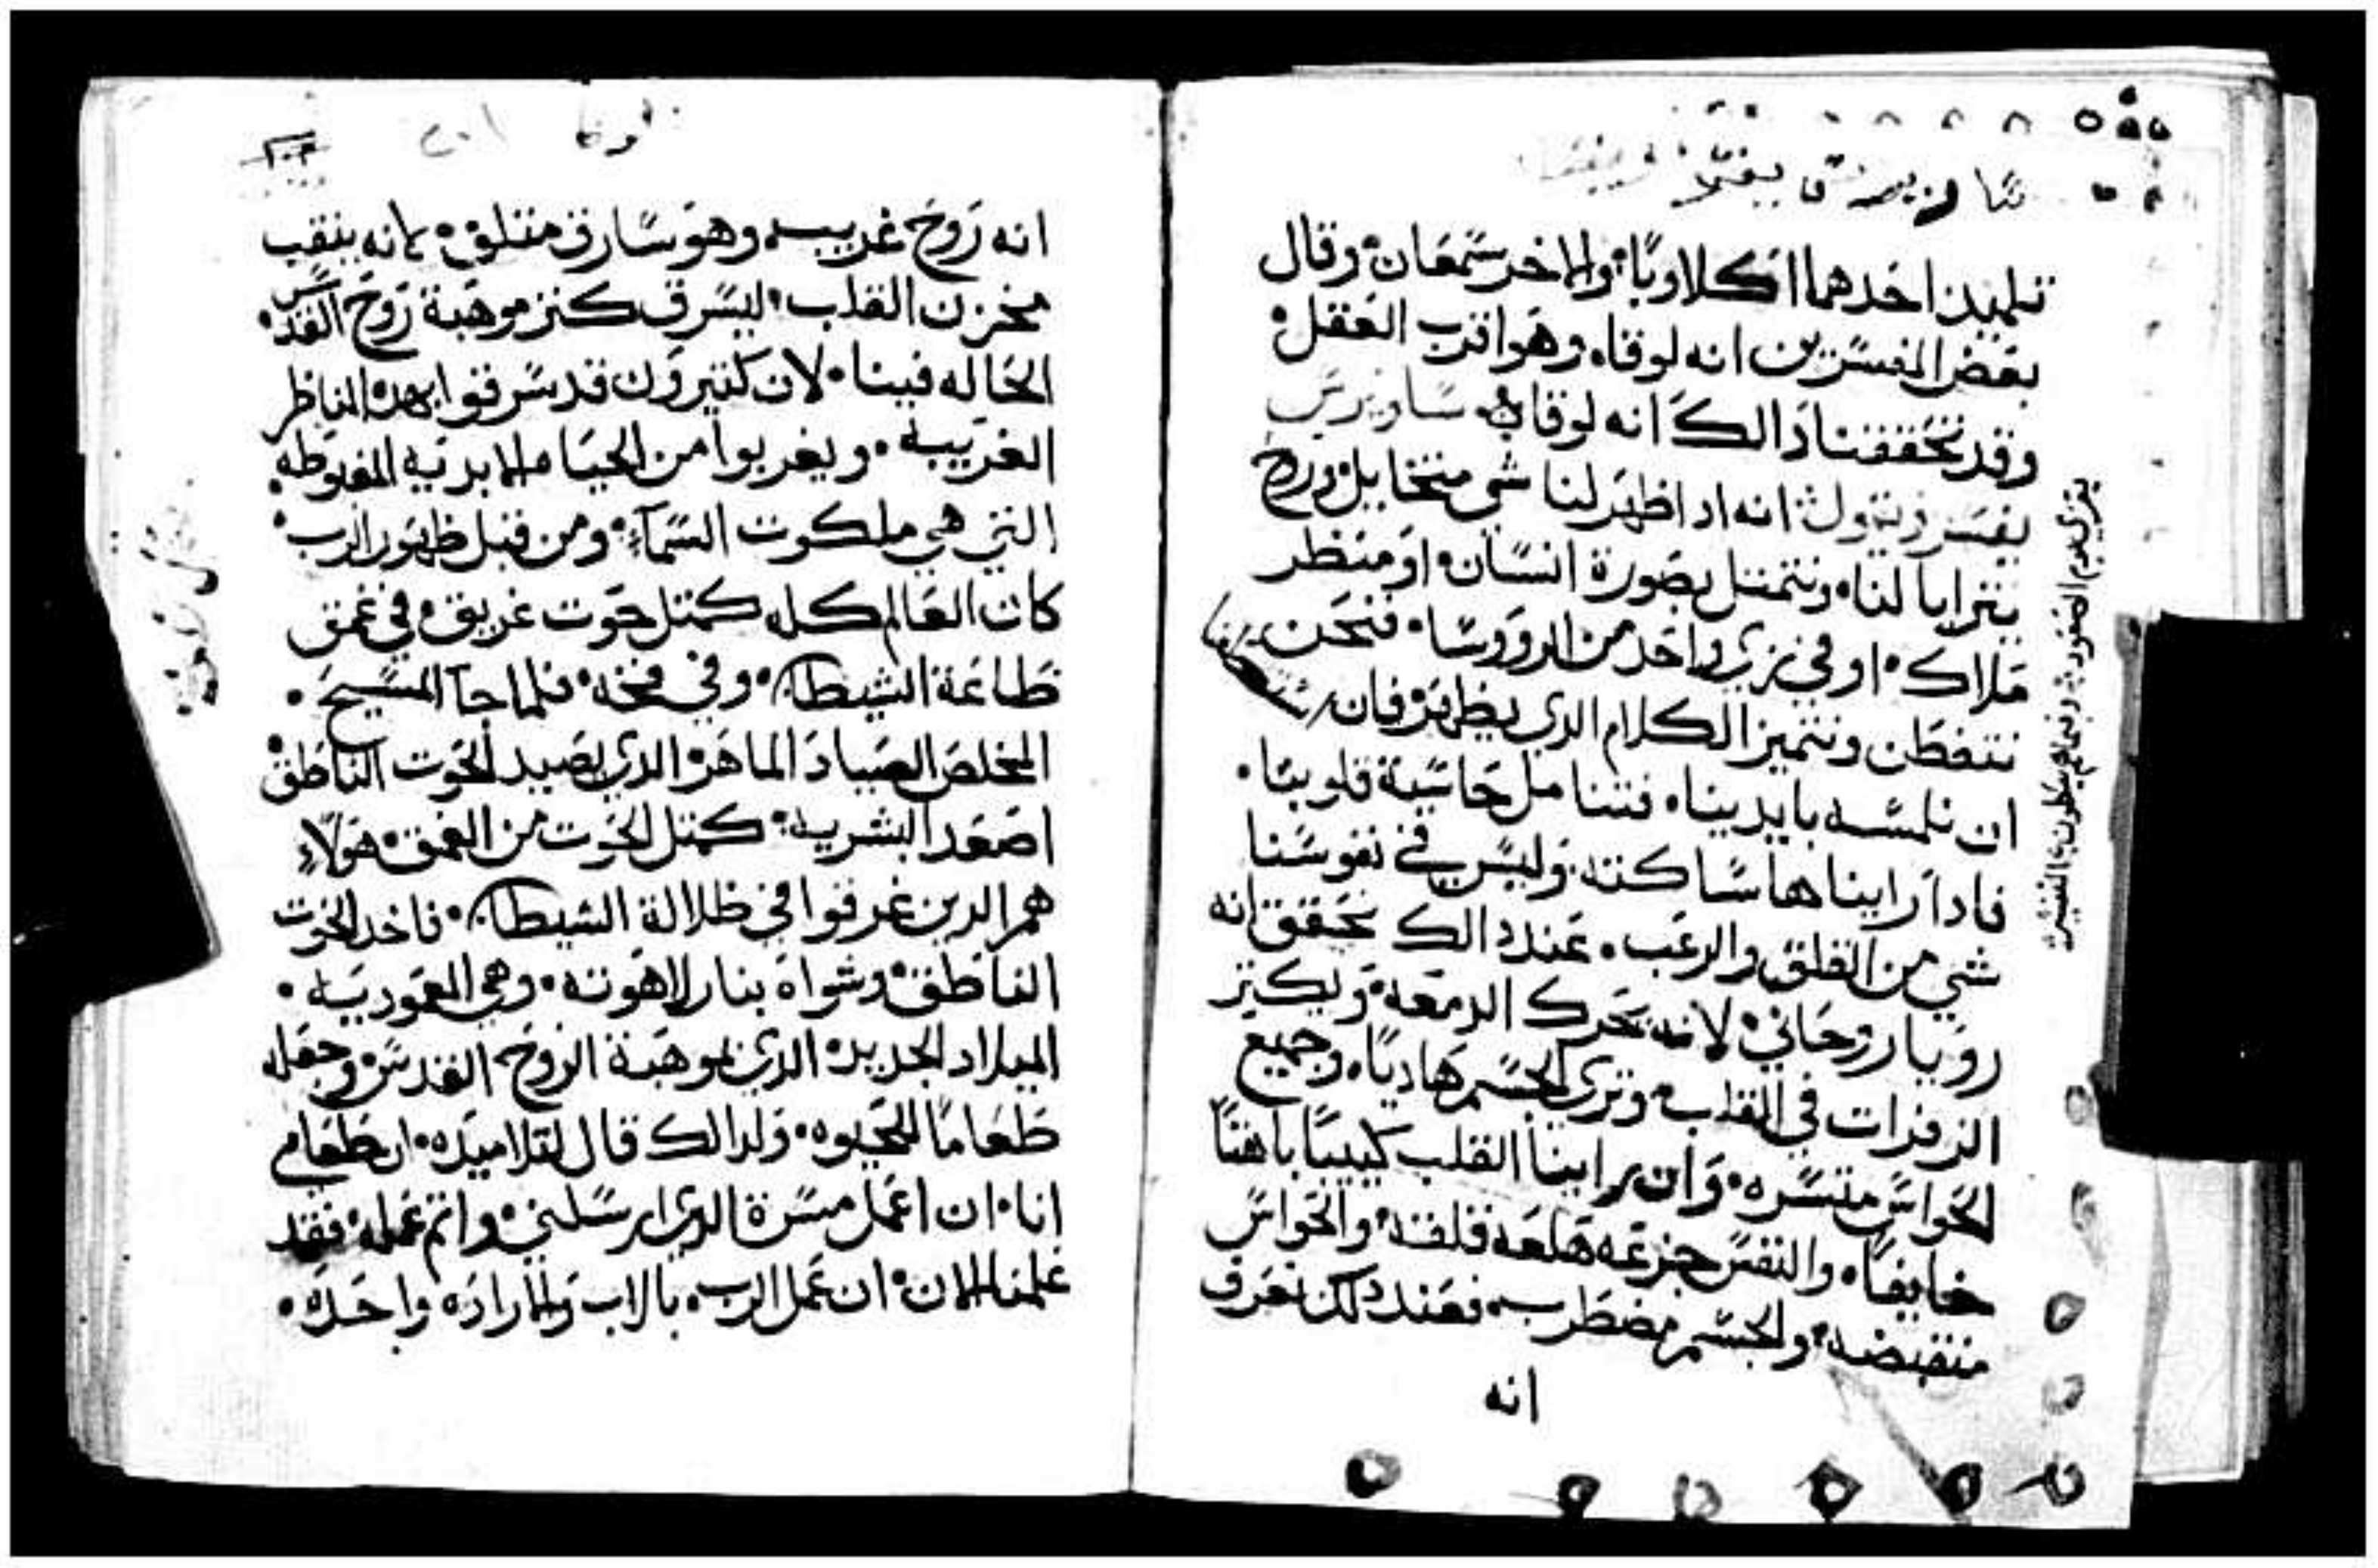 ساويرس يفسر
تلميذين احدهما اكلاوبا والاخر سمعان وقال
بعض المفسرين انه لوقا وهو اقرب العقل
وقد تحققنا دالك انه لوقا ساويرس
يفسر ويقول انه اد اظهر لنا شي متخايل وروح
يترايا لنا ونتمتل بصورة انسان او منظر
ملاك او في زي واحد من الرووسا فنحن
نتفطن ونتميز الكلام الدي يظهر فان
ان نلمسه بايدينا فتنامل حاسية قلوبنا
فادا راينا هاساكنه وليس في نفوسنا
شي من القلق والرعب عند دالك نحقق انه
رويا روحاني لانه تحرك الدمعه ويكتر
الزفرات في القلب وترى الجسم هاديا وجميع
الحواس متسره وان راينا القلب كييبا باهتا
خايفا والنفس جزعه هلعه قلقه والحواس
منقبضه والجسم مضطرب فعند دلك نعرف
انه
لوقا
١٠٣
انه روح غريب وهو سارق متلق لانه ينقب
مخزن القلب ليسرق كنز موهبة روح القدس
الحاله فينا لان كتيرون قد سرقوا بهده المناظر
الغريبه ويغربوا من الحياه الابديه المغبوطه
التي هي ملكوت السماء ومن قبل ظهور الرب
كان العالم كله كمتل حوت غريق في عمق
طاعة الشيطان وفي فخه فلما جا المسيح
المخلص الصياد الماهر الدي يصيد الحوت الناطق
اصعد البشريه كمتل الحوت من العمق هولاء
هم الدين غرقوا في ظلالة الشيطان فاخد الحوت
الناطق وشواه بنار لاهوته وهي المعوديه
الميلاد الجديد الدي بموهبة الروح القدس وجعله
طعاما للحيوه ولدالك قال لتلاميده ان طعامي
انا ان اعمل مسرة الدي ارسلني واتم عمله فقد
علمنا الان ان عمل الرب بالاب والاراده واحده